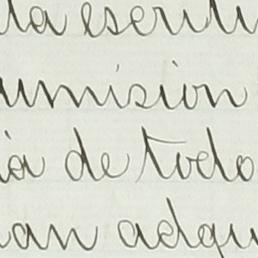 la escritu
umision
ia de todo
ian adqui